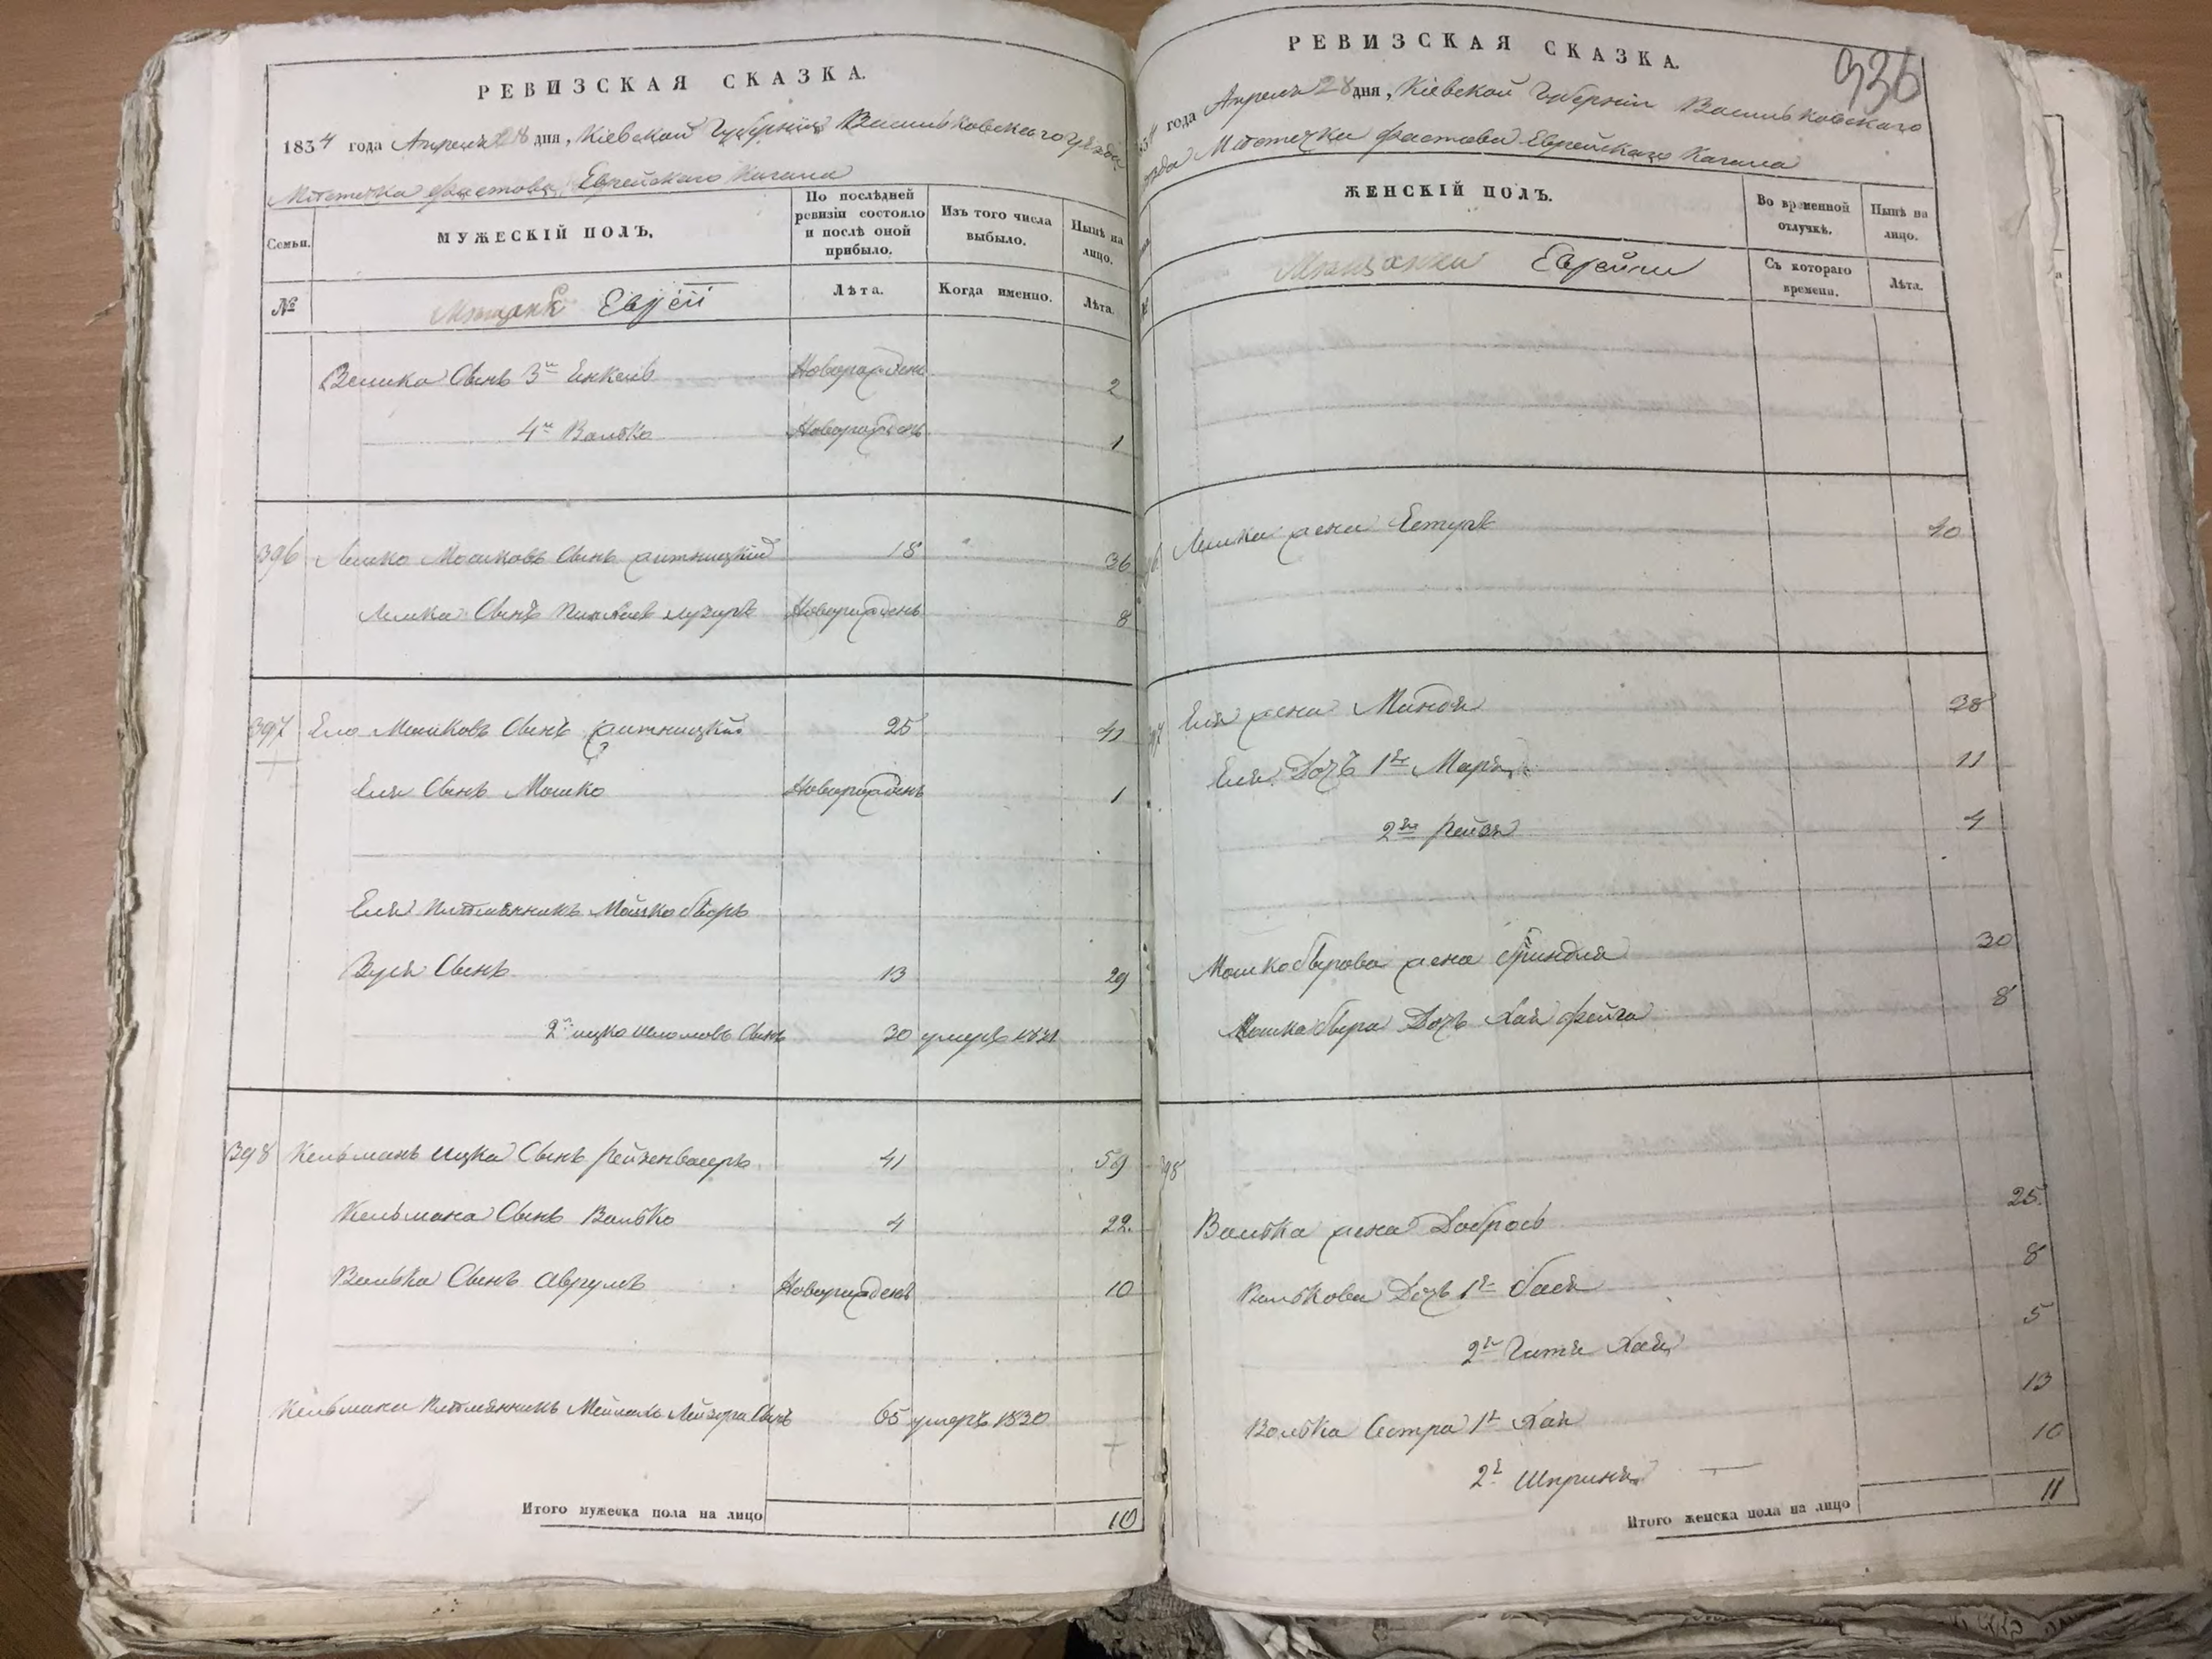 РЕВИЗСКАЯ СКАЗКА.
1834 года Апреля 28 дня, Кіевской Губерніи Васильковскаго уѣзда
Мѣстечка Фастова Еврейскаго Кагала
Семьи.
МУЖЕСКІЙ ПОЛЪ.
По послѣдней ревизіи состояло и послѣ оной прибыло.
Изъ того числа выбыло.
Нынѣ на лицо.
№
Мѣщане Евреи
Лѣта.
Когда именно.
Лѣта.
Сынъ 3й 2
4й Волько Новорожденъ 1
396 Лейко Мошковъ Сынъ Житницкій 18 36
Сынъ Новорожденъ 8
397 Ело Мошковъ Сынъ Житницкій 25 41
Еля Сынъ Мошко Новорожденъ 1
Еля племянникъ Мошко беръ
Сынъ 13 29
2й Ицко Шломовъ Сынъ 30 умеръ 1831
398 Кельманъ Ицка Сынъ 41 59
Кельмана Сынъ Волько 4 22.
Волька Сынъ Аврумъ Новорожденъ 10
Кельмана племянникъ Лейзера Сынъ 65 умеръ 1830
Итого мужеска пола на лицо 10
РЕВИЗСКАЯ СКАЗКА.
936
34 года Апреля 28 дня, Кіевской Губерніи Васильковскаго
уѣзда Мѣстечка Фастова Еврейскаго Кагала
ЖЕНСКІЙ ПОЛЪ.
Во временной отлучкѣ.
Нынѣ на лицо.
Мѣщанки Еврейки
Съ котораго времени.
Лѣта.
жена Естеръ 40
Еля жена Миндя 38
Еля Дочь 1я Марья 11
2я Рейзя 4
Мошкобърова жена 30
Мошкабера Дочь Хая фейга 8
98
Волька жена Добрось 25.
Волькова Дочь 1я бася 8
2я Гитя Хая 5
Волька Сестра 1я Хая 13
2я Шприня 10
Итого женска пола на лицо 11